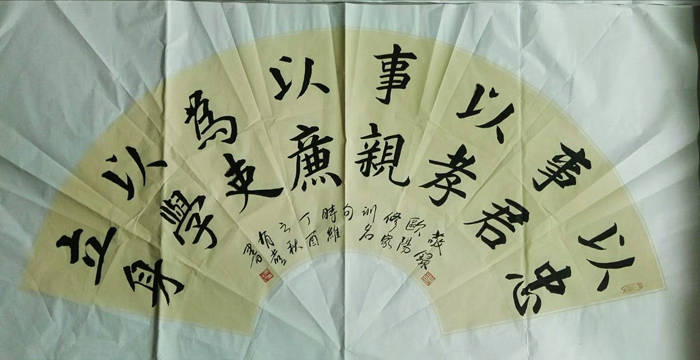 以忠
事君
以孝
事親
以廉
為吏
以學
立身
敬錄
歐陽
修家
訓名
句
時維
丁酉
之秋
有
書